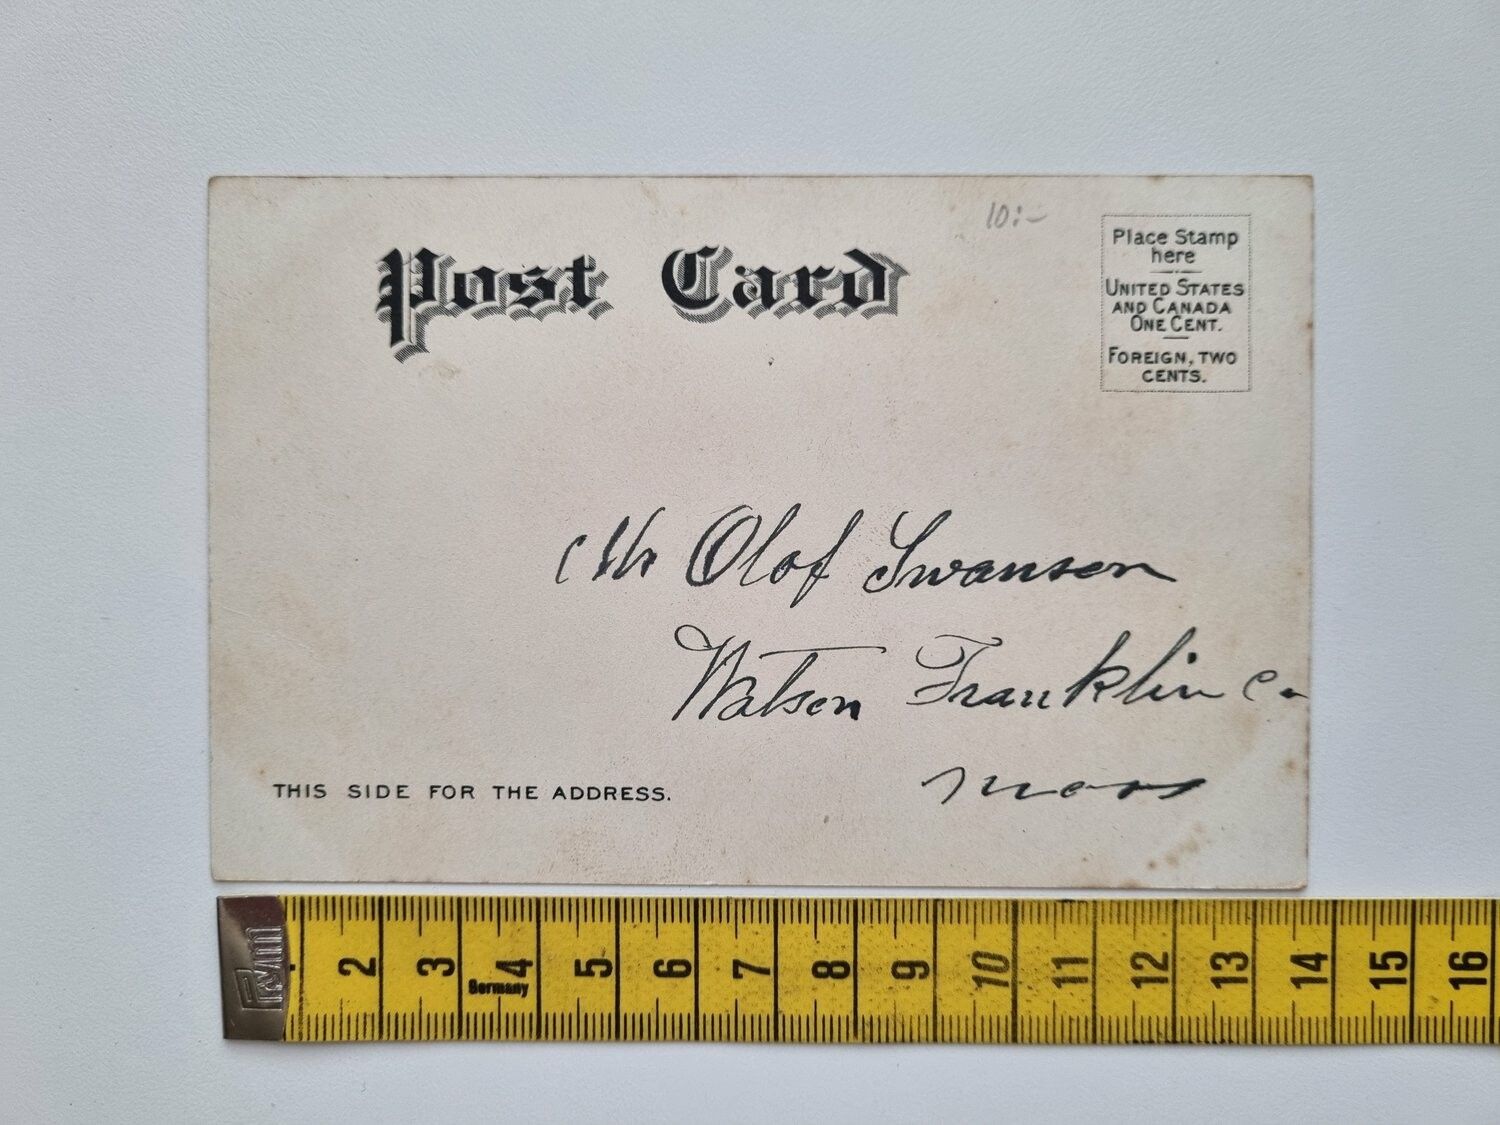 10:-
Post Card
Place Stamp
here
UNITED STATES
AND CANADA
ONE CENT.
FOREIGN, TWO
CENTS.
Mr Olof Swanson
Watson Franklin Co
Mass
THIS SIDE FOR THE ADDRESS.
Prym
2 3 4 5 6 7 8 9 10 11 12 13 14 15 16
Germany